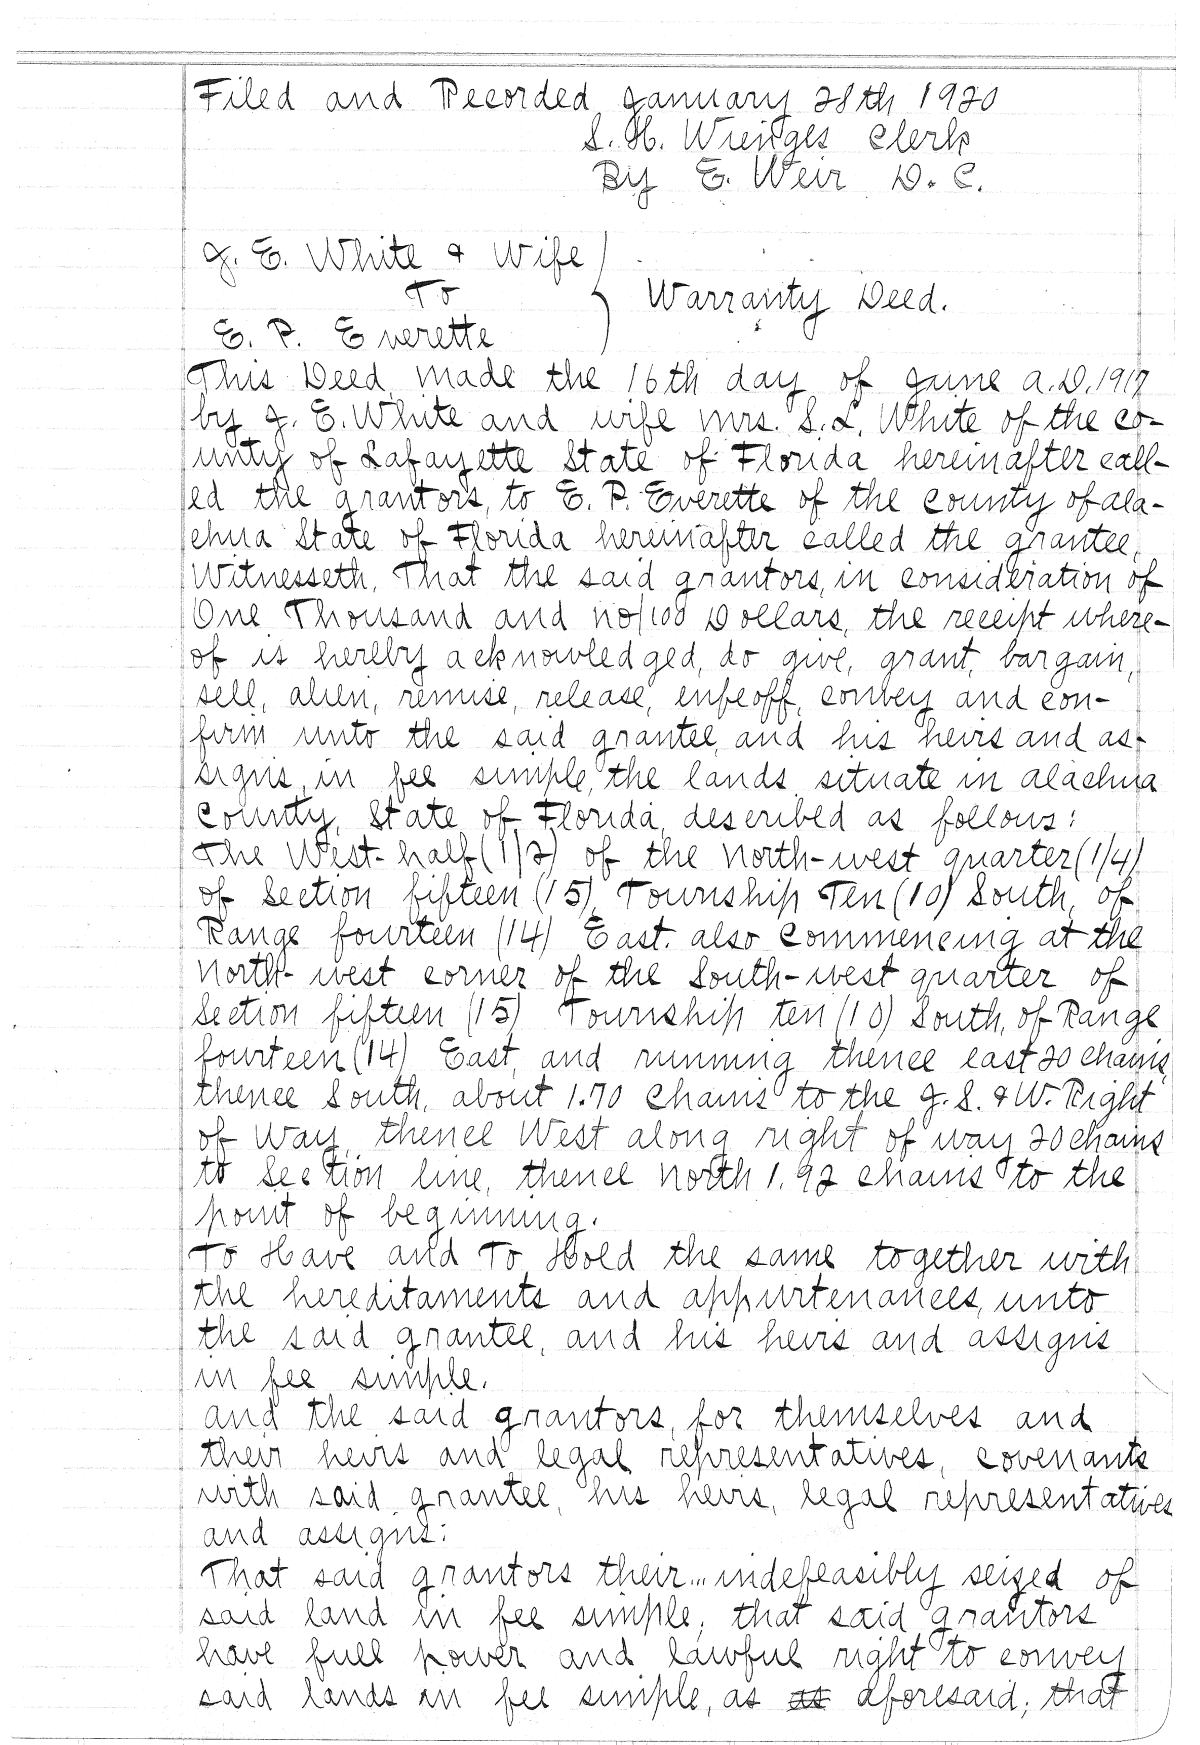 Filed and Recorded January 28th 1920
S. H. Wienges Clerk
By E. Weir D. C.
J. E. White & Wife
To
Warranty Deed.
E. P. Everette
This Deed, made the 16th day of June A.D. 1917
by J. E. White and wife Mrs. S. L. White of the co-
unty of Lafayette State of Florida hereinafter call-
ed the grantors, to E. P. Everette of the County of Ala-
chua State of Florida hereinafter called the grantee,
Witnesseth, That the said grantors, in consideration of
One Thousand and no/100 Dollars, the receipt where-
of is hereby acknowledged, do give, grant, bargain,
sell, alien, remise, release, enfeoff, convey and con-
firm unto the said grantee, and his heirs and as-
signs, in fee simple, the lands situate in Alachua
County, State of Florida, described as follows:
The West-half (1/2) of the North-west quarter (1/4)
of Section fifteen (15), Township Ten (10) South, of
Range fourteen (14) East. also Commencing at the
North-west corner of the South-west quarter of
Section fifteen (15) Township ten (10) South, of Range
fourteen (14) East, and running thence east 20 chains,
thence South, about 1.70 Chains to the J. S. & W. Right
of Way, thence West along right of way 20 chains
to Section line, thence North 1.92 chains to the
point of beginning.
To Have and To Hold the same together with
the hereditaments and appurtenances, unto
the said grantee, and his heirs and assigns
in fee simple.
and the said grantors, for themselves and
their heirs and legal representatives, covenants
with said grantee, his heirs, legal representatives
and assigns:
That said grantors their... indefeasibly seized of
said land in fee simple; that said grantors
have full power and lawful right to convey
said lands in fee simple, as as aforesaid; that